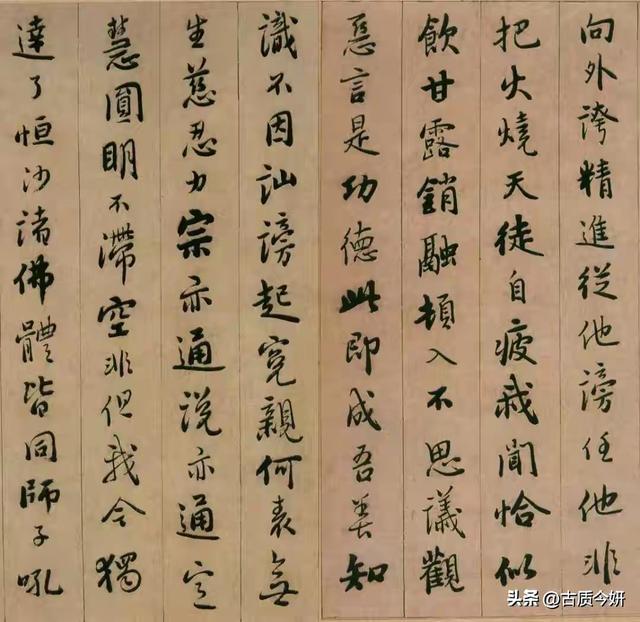 向外誇精進從他謗任他非
把火燒天徒自疲我聞恰似
飲甘露銷融頓入不思議觀
惡言是功德此即成吾善知
識不因訕謗起冤親何表無
生慈忍力宗亦通說亦通定
慧圓明不滯空非但我今獨
達了恒沙諸佛體皆同師子吼
头条 @古质今妍